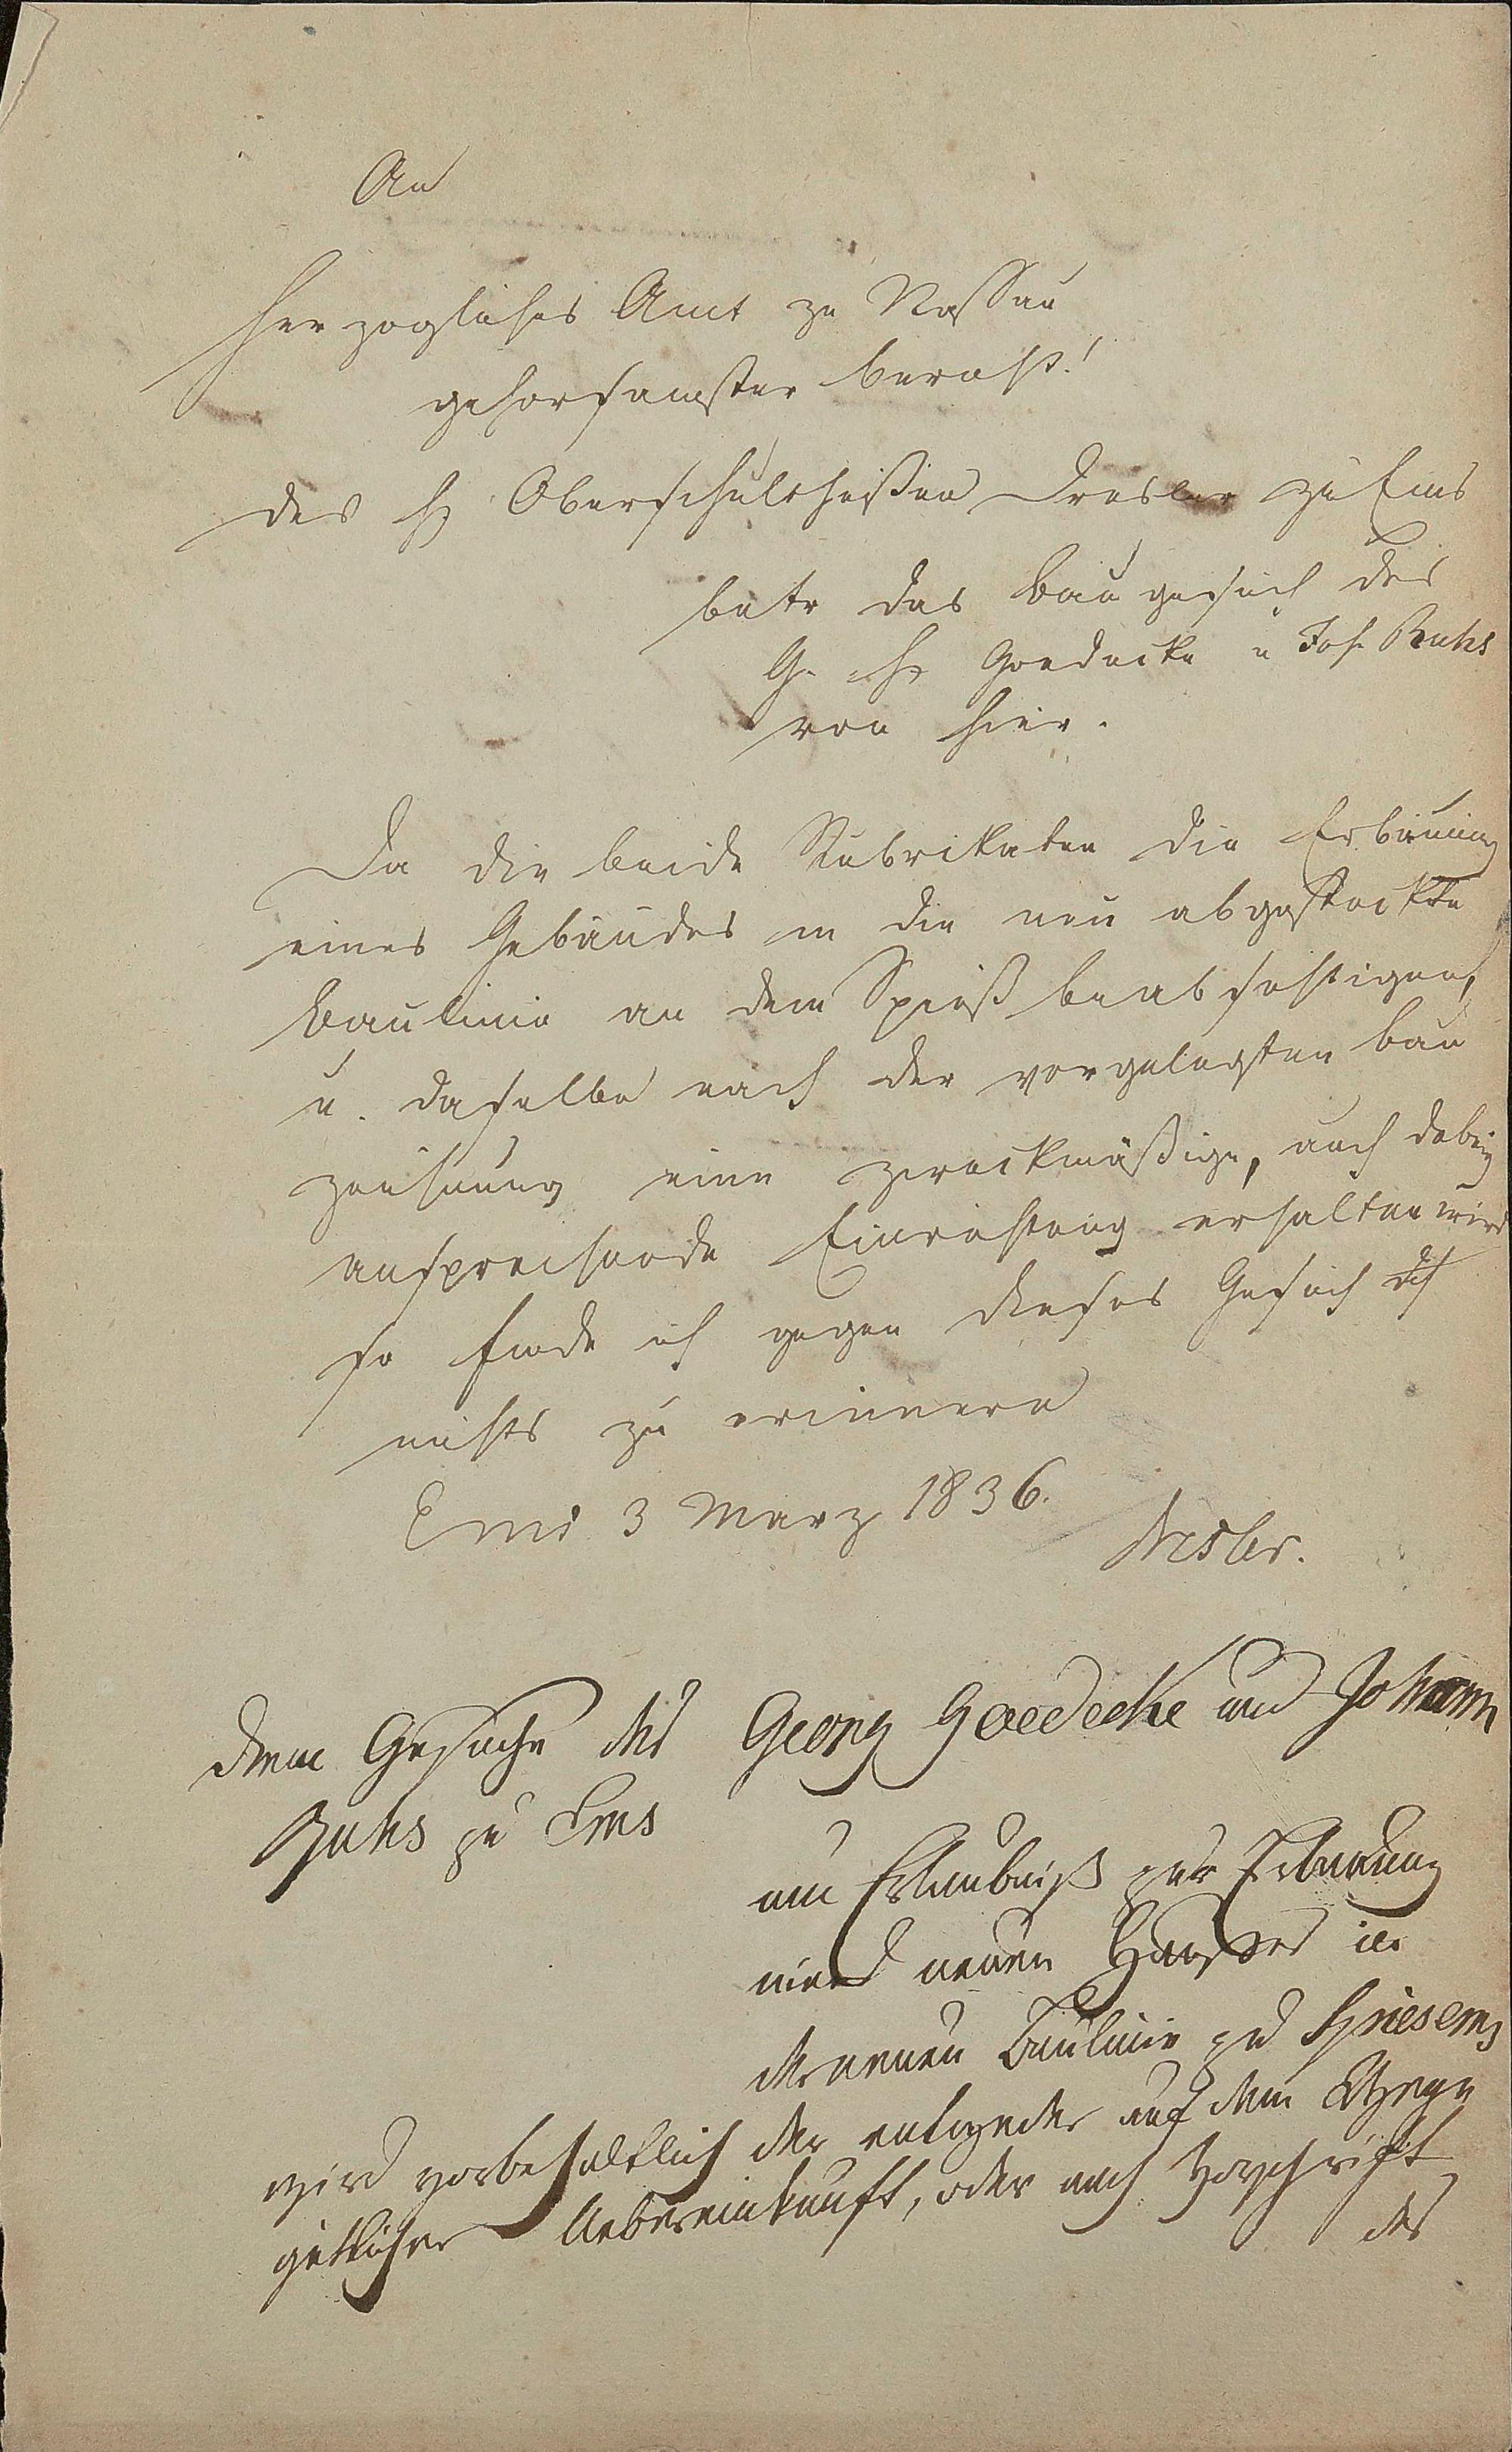 An
Herzogliches Amt zu Nassau
gehorsamster Bericht!
des Hz Oberschultheißen Dresler zu Ems
betr das Baugesuch des
G. Hr Goedecke u Joh. Buhs
von hier.
Da die beide Rubrikaten die Erbauung
eines Gebäudes in die neu abgesteckte
Baulinie an dem Spieß beabsichtigen,
u. dasselbe nach der vorgelegten Bau
zeichnung eine zweckmäßige, auch dabey
ansprechende Einrichtung erhalten wird
so finde ich gegen dieses Gesuch
nichts zu erinnern
Ems 3 März 1836.
Dresler.
Dem Gesuche des Georg Goedecke und Johann
Buhs zu Ems
um Erlaubniß zur Erbauung
eines neuen Hauses in
der neuen Baulinie zu Spiesems
wird vorbehaltlich der entweder auf dem Wege
gütlicher Uebereinkunft, oder nach Vorschrift
des